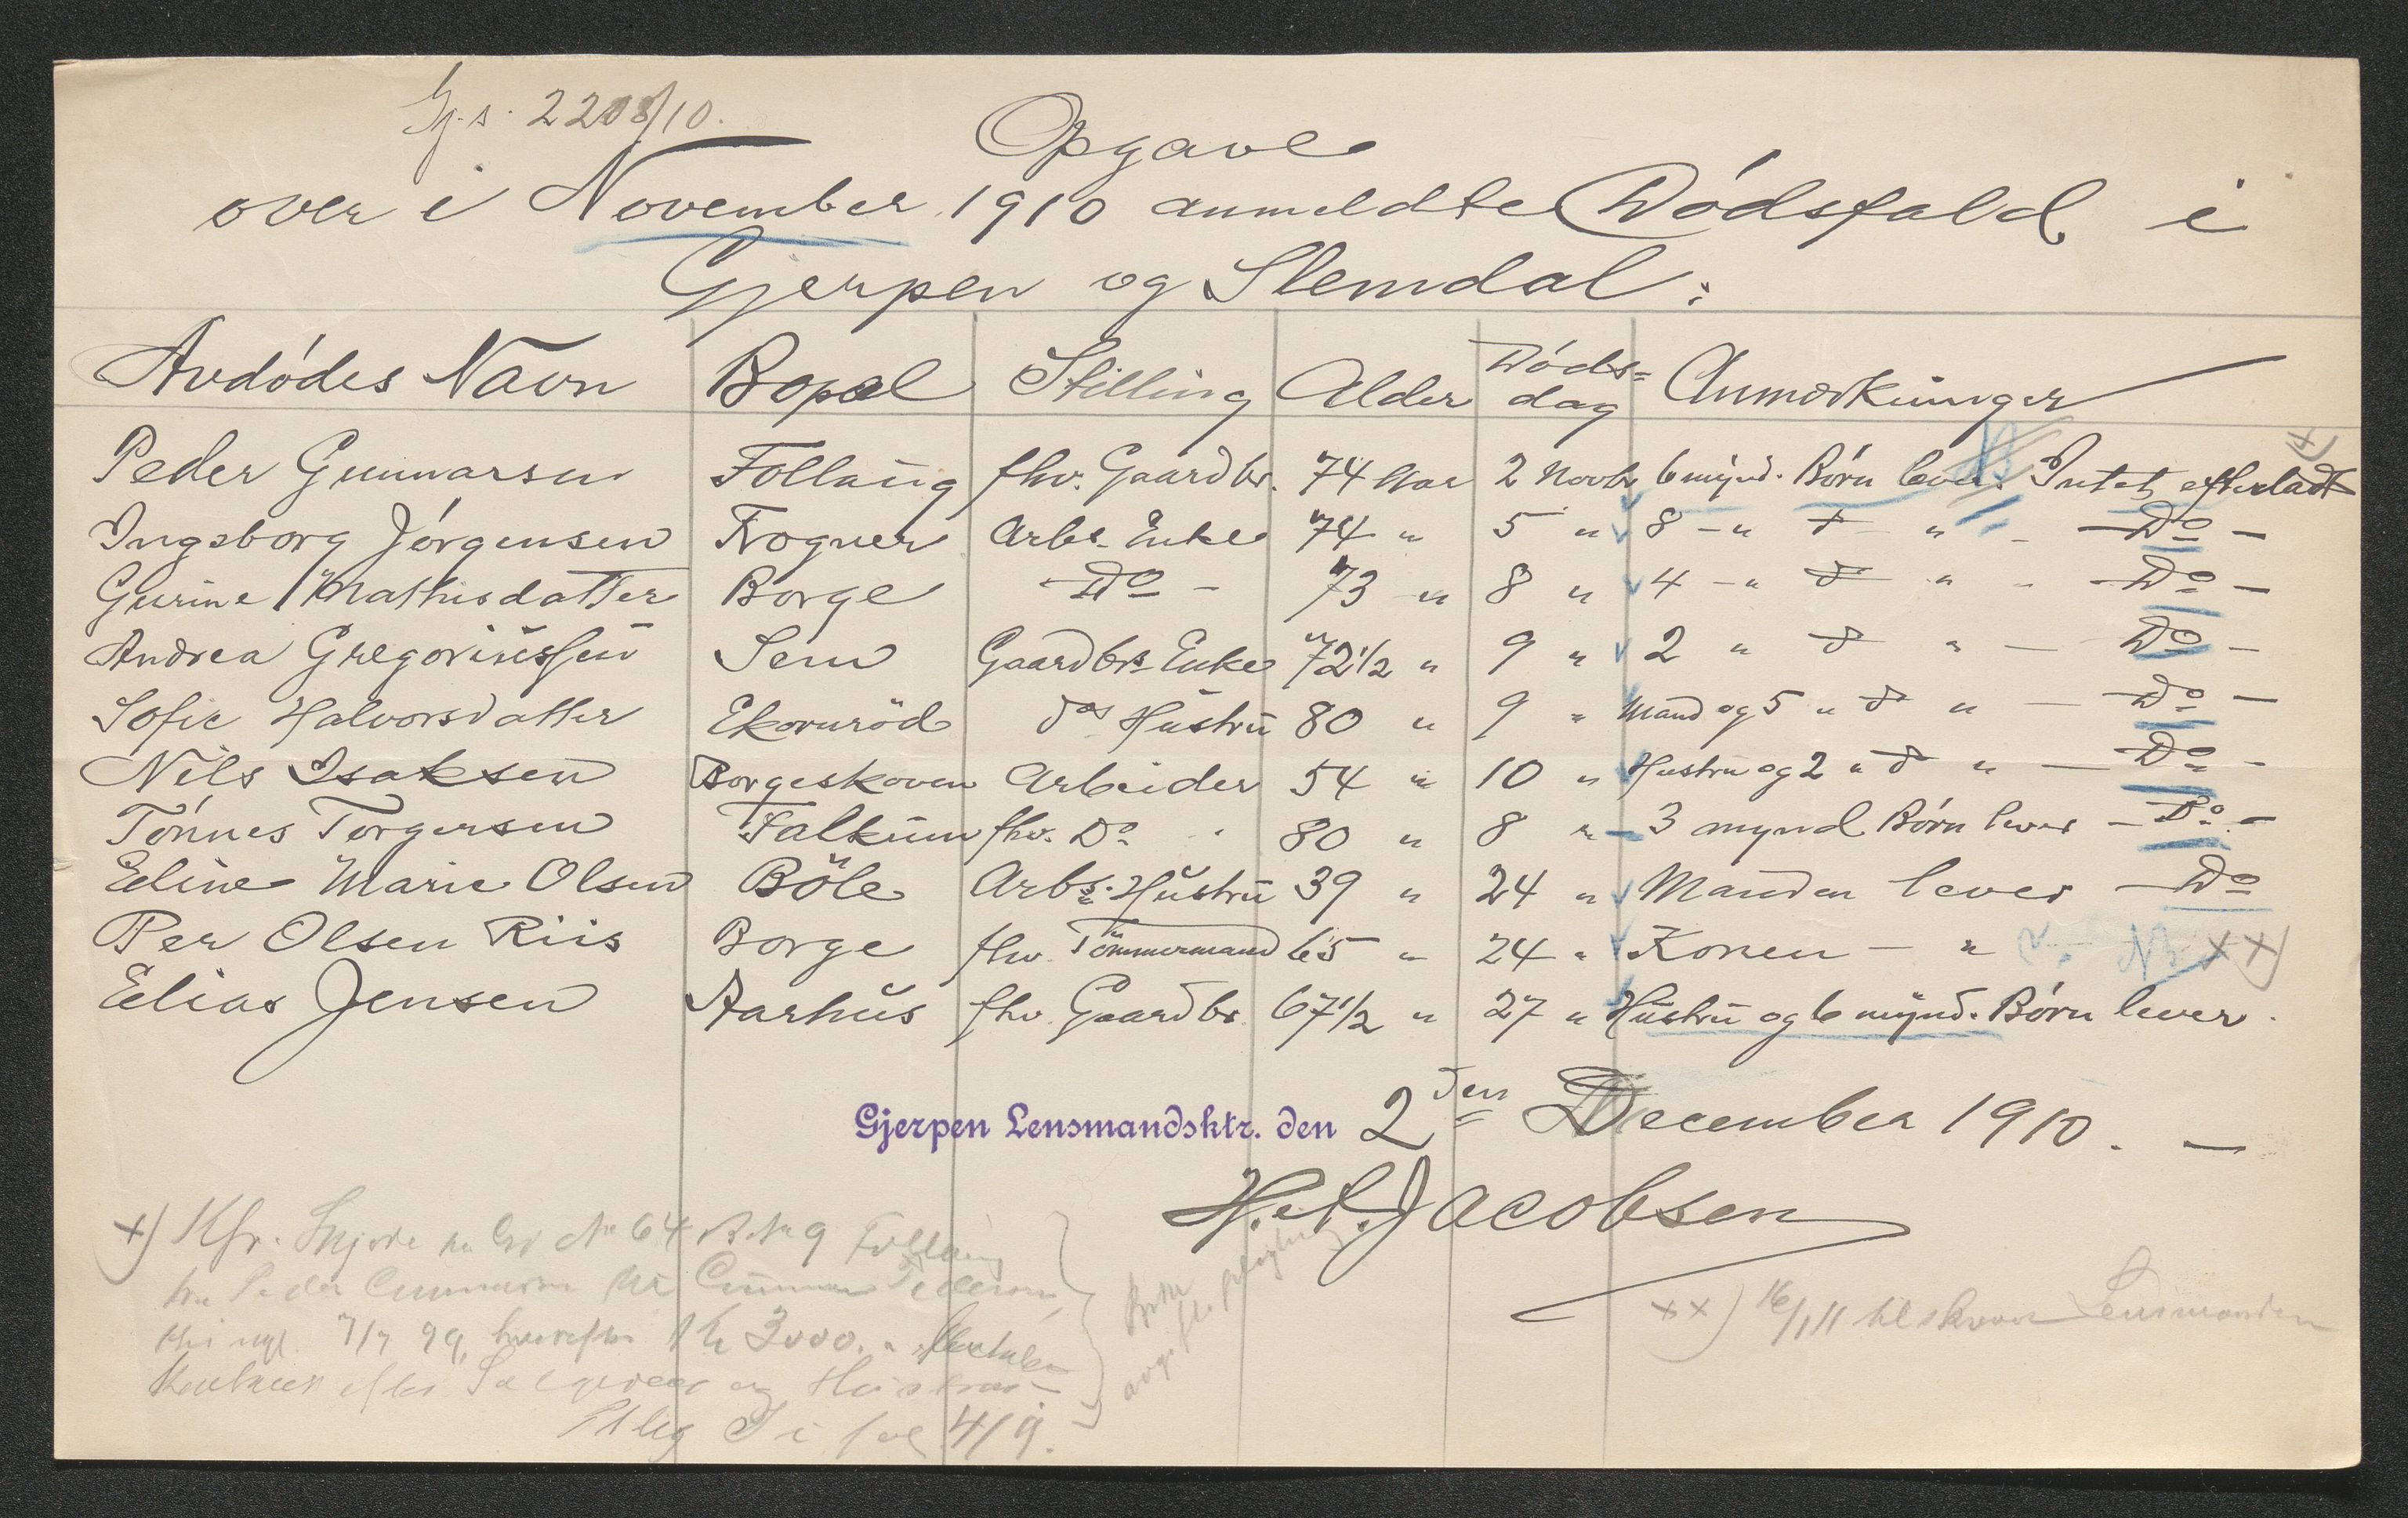 Gj.s. 2208/10.
Opgave
over i November 1910 anmeldte Dødsfald i
Gjerpen og Slemdal:
Avdødes Navn Bopæl Stilling Alder Døds=dag Anmærkninger
Peder Gunnarsen Follaug fhv. Gaardbr. 74 Aar 2 Novbr 6 mynd. Børn lever. Intet efterladt x)
Ingeborg Jørgensen Frogner Arbs Enke 74 " 5 " 8 - " d " - Do -
Gurine Mathisdatter Borge - Do - 73 " 8 " 4 - " d " - Do -
Andrea Gregoriussen Sem Gaardbrs Enke 72 1/2 " 9 " 2 " d " - Do -
Sofie Halvorsdatter Ekornrød ds Hustru 80 " 9 " Mand og 5 " d " - Do -
Nils Isaksen Borgeskoven Arbeider 54 " 10 " Hustru og 2 " d " - Do -
Tønnes Torgersen Falkum fhv. Do 80 " 8 " - 3 mynd Børn lever - Do -
Eeline Marie Olsen Bøle Arbs. Hustru 39 " 24 " Manden lever - Do
Per Olsen Riis Borge fhv. Tømmermand 65 " 24 " Konen - " xx)
Elias Jensen Aarhus fhv. Gaardbr 67 1/2 " 27 " Hustru og 6 mynd. Børn lever.
Gjerpen Lensmandsktr. den 2den December 1910. -
H. A. Jacobsen
x) Kfr. Skjøte No 64 B.No 9 Follaug
fra Peder Gunnarsen til Gunnar Pedersen
7/7 99, kr 3000.
efter Sælgeren og Hustru
I i fol 419.
xx) 16/1 11 tilskrevet Lensmanden